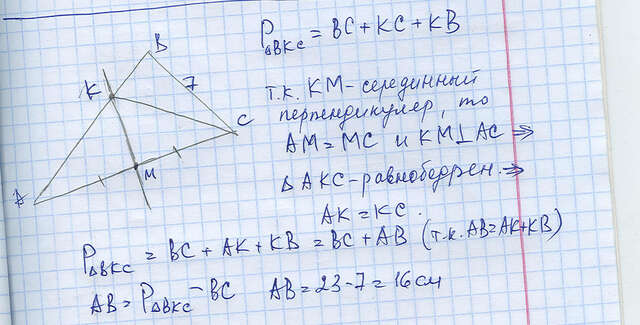 B
K
7
C
M
A
P△BKC = BC + KC + KB
т.к. KM - серединный
перпендикуляр, то
AM = MC и KM⊥AC ⇒
△AKC - равнобедрен. ⇒
AK = KC.
P△BKC = BC + AK + KB = BC + AB (т.к. AB = AK + KB)
AB = P△BKC - BC AB = 23 - 7 = 16 см